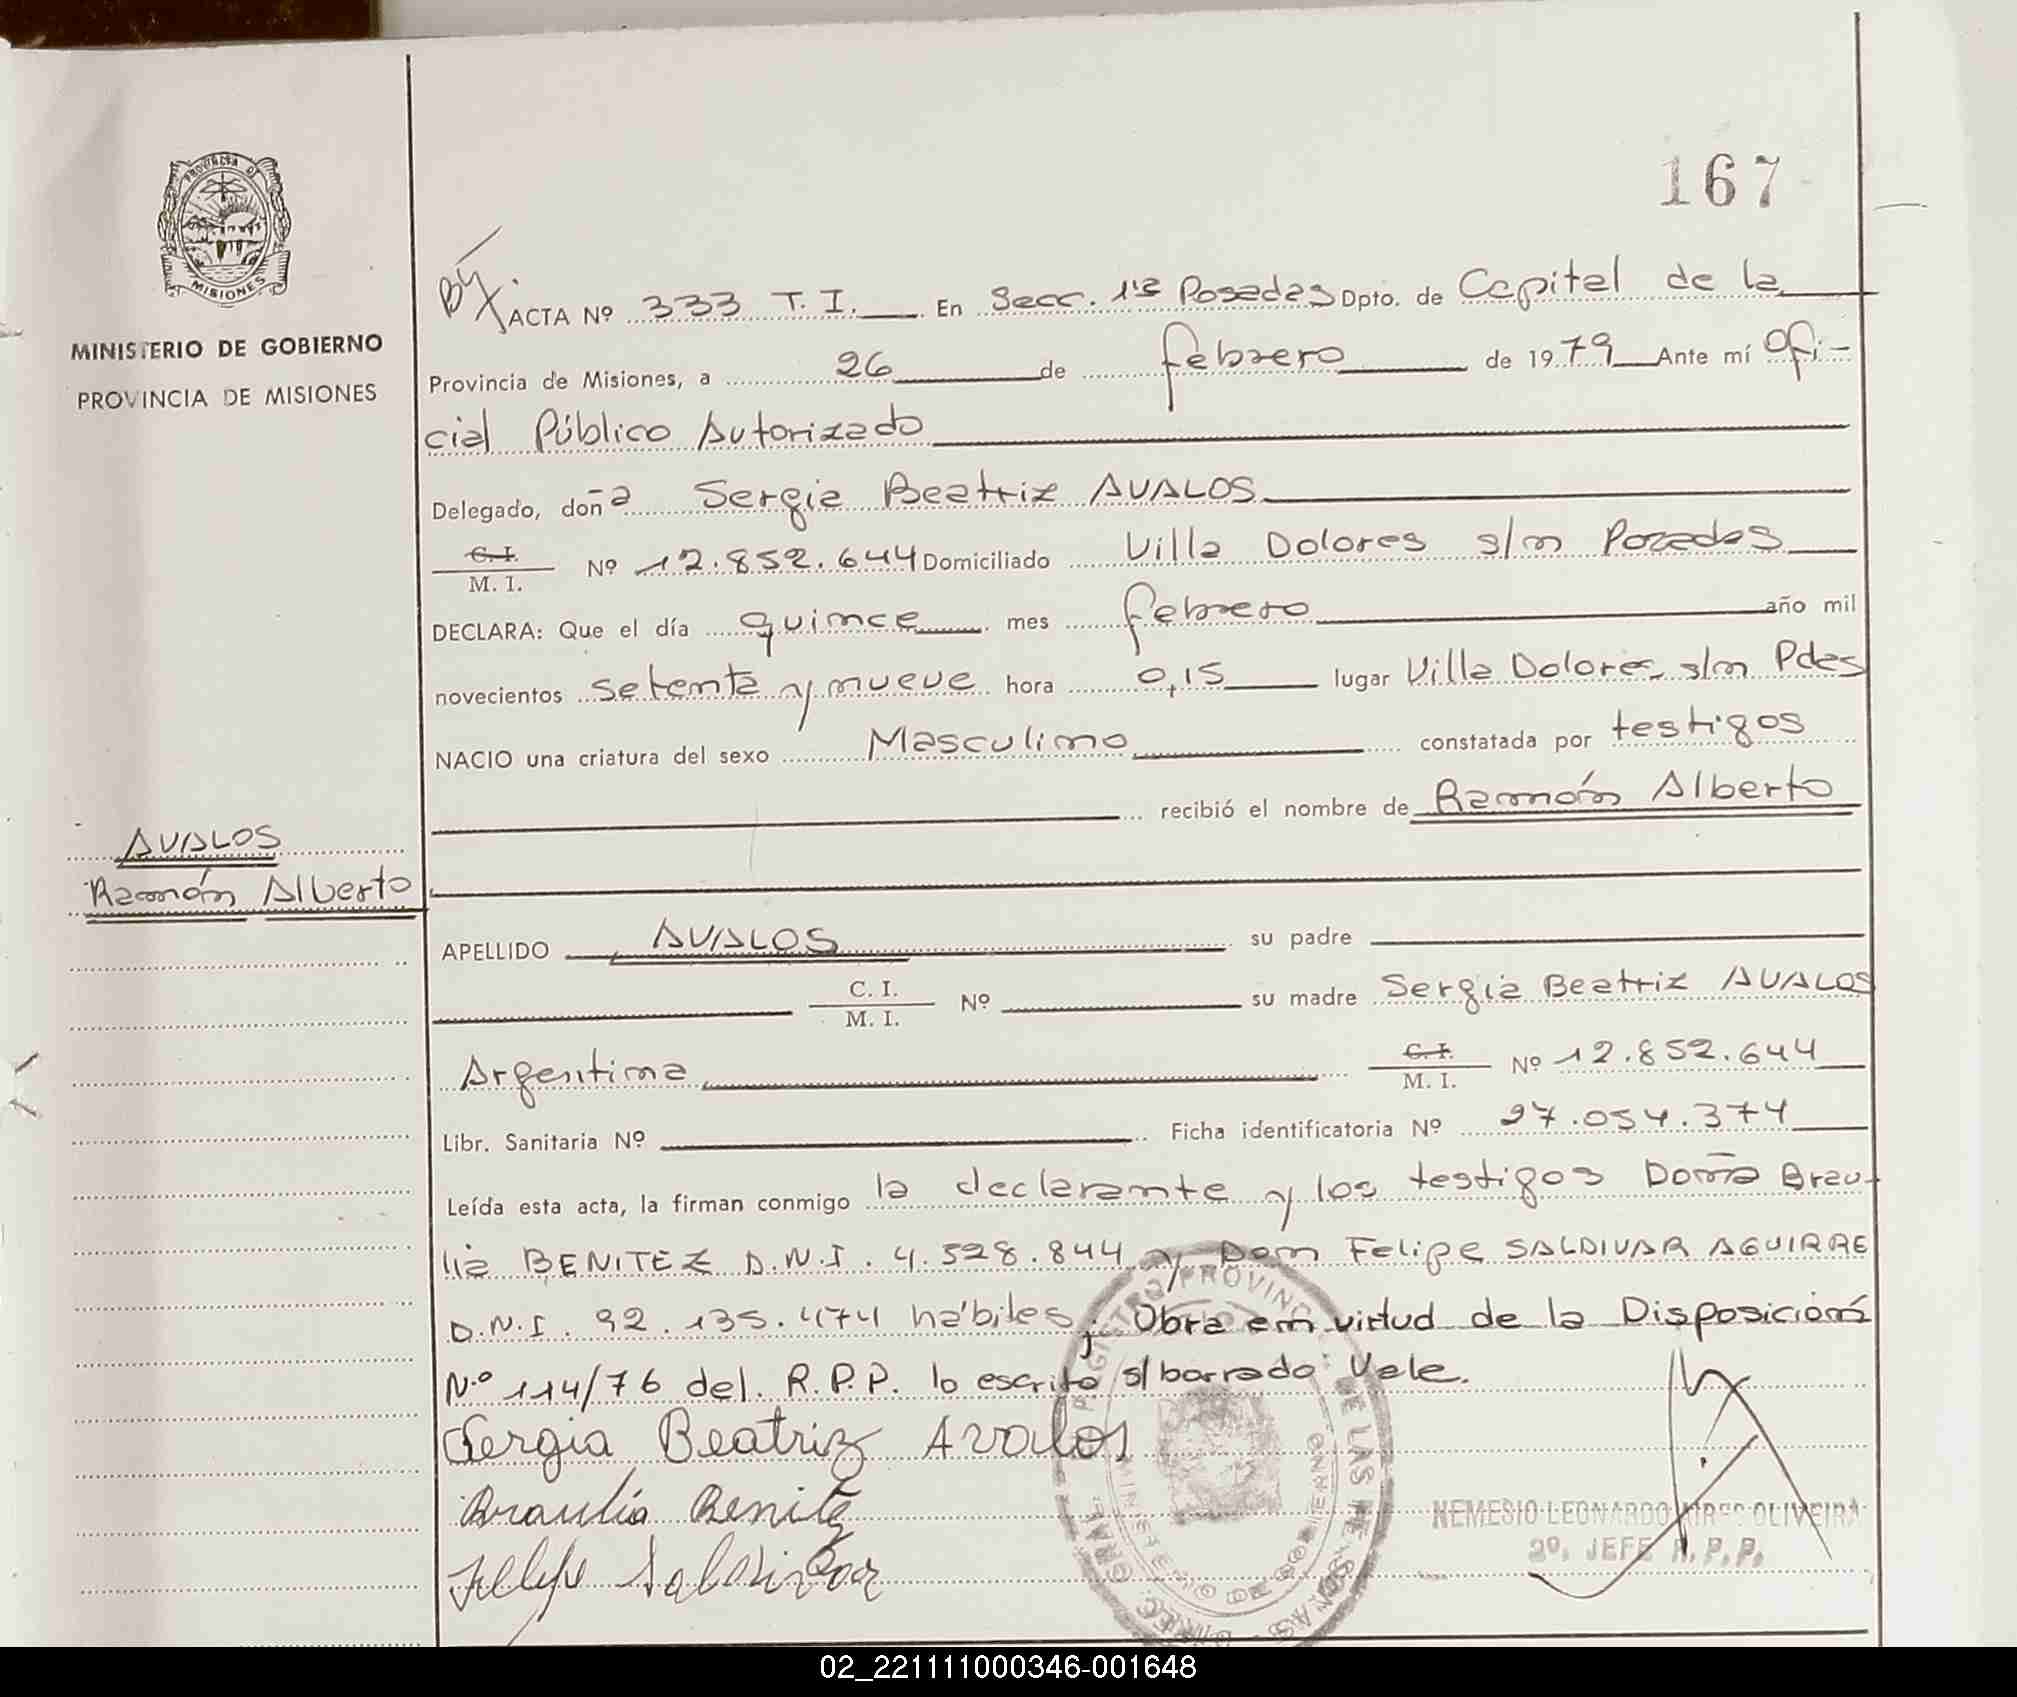 167
PROVINCIA DE
MISIONES
MINISTERIO DE GOBIERNO
PROVINCIA DE MISIONES
ACTA Nº 333 T. I. En Secc. 1ra Posadas Dpto. de Capital de la
Provincia de Misiones, a 26 de febrero de 1979 Ante mí Ofi-
cial Público Autorizado
Delegado, doña Sergia Beatriz AVALOS
C. I.
M. I.
Nº 12.852.644 Domiciliado Villa Dolores s/n Pozadas
DECLARA: Que el día quince mes febrero año mil
novecientos setenta y nueve hora 0,15 lugar Villa Dolores s/n Pdas
NACIO una criatura del sexo Masculino constatada por testigos
recibió el nombre de Ramón Alberto
AVALOS
Ramón Alberto
APELLIDO AVALOS su padre
C. I.
M. I.
Nº su madre Sergia Beatriz AVALOS
Argentina C. I.
M. I.
Nº 12.852.644
Libr. Sanitaria Nº Ficha identificatoria Nº 27.054.374
Leída esta acta, la firman conmigo la declarante y los testigos Doña Brau-
lia BENITEZ D.N.I. 4.528.844 y Don Felipe SALDIVAR AGUIRRE
D.N.I. 92.135.474 hábiles; Obra en virtud de la Disposición
N.º 114/76 del. R.P.P. lo escrito s/borrado Vale.
Sergia Beatriz Avalos
Braulia Benitez
Felipe Saldivar
REGISTRO PROVINCIAL DE LAS PERSONAS
MINISTERIO DE GOBIERNO
NEMESIO LEONARDO AIRES OLIVEIRA
2º. JEFE R.P.P.
02_221111000346-001648